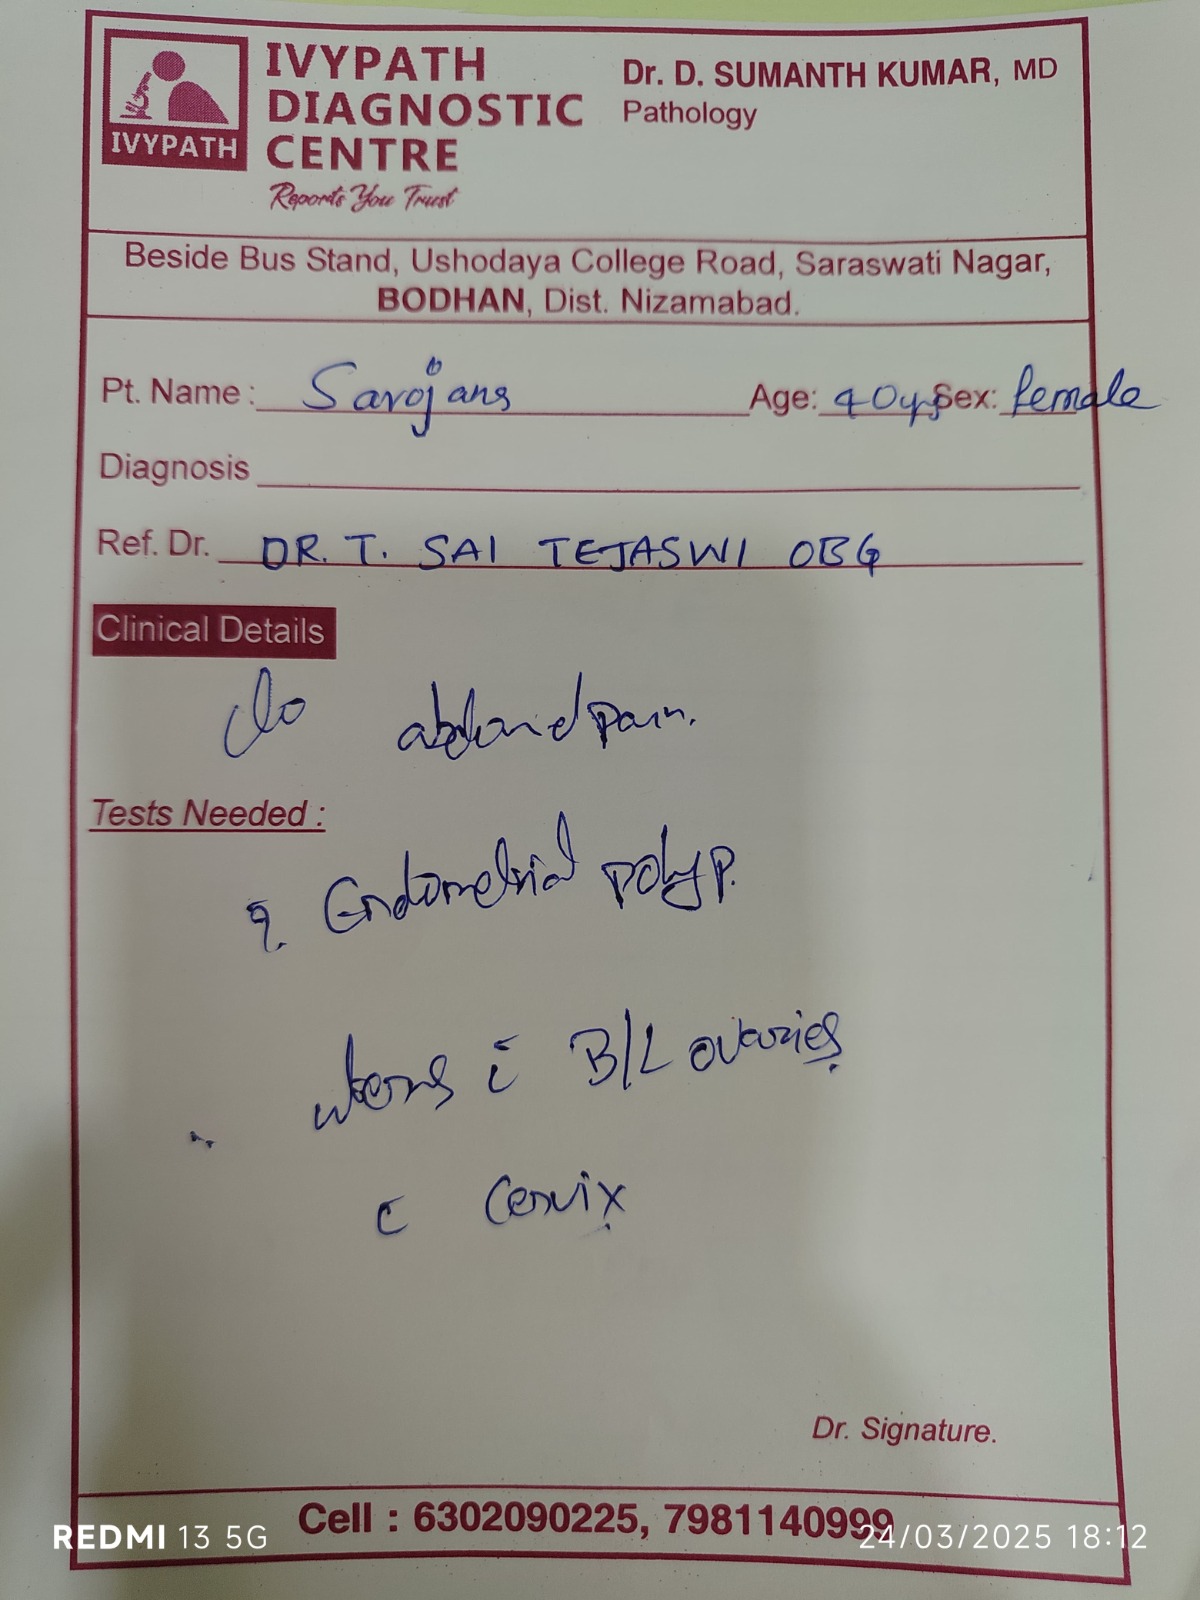 IVYPATH
IVYPATH
DIAGNOSTIC
CENTRE
Reports You Trust
Dr. D. SUMANTH KUMAR, MD
Pathology
Beside Bus Stand, Ushodaya College Road, Saraswati Nagar,
BODHAN, Dist. Nizamabad.
Pt. Name : Age: 40yrs Sex: female
Diagnosis
Ref. Dr. DR. T. SAI TEJASWI OBG
Clinical Details
c/o pain.
Tests Needed :
?. Endometrial polyp.
uterus c̄ B/L ovaries
c̄ Cervix
Dr. Signature.
Cell : 6302090225, 7981140999
REDMI 13 5G
24/03/2025 18:12